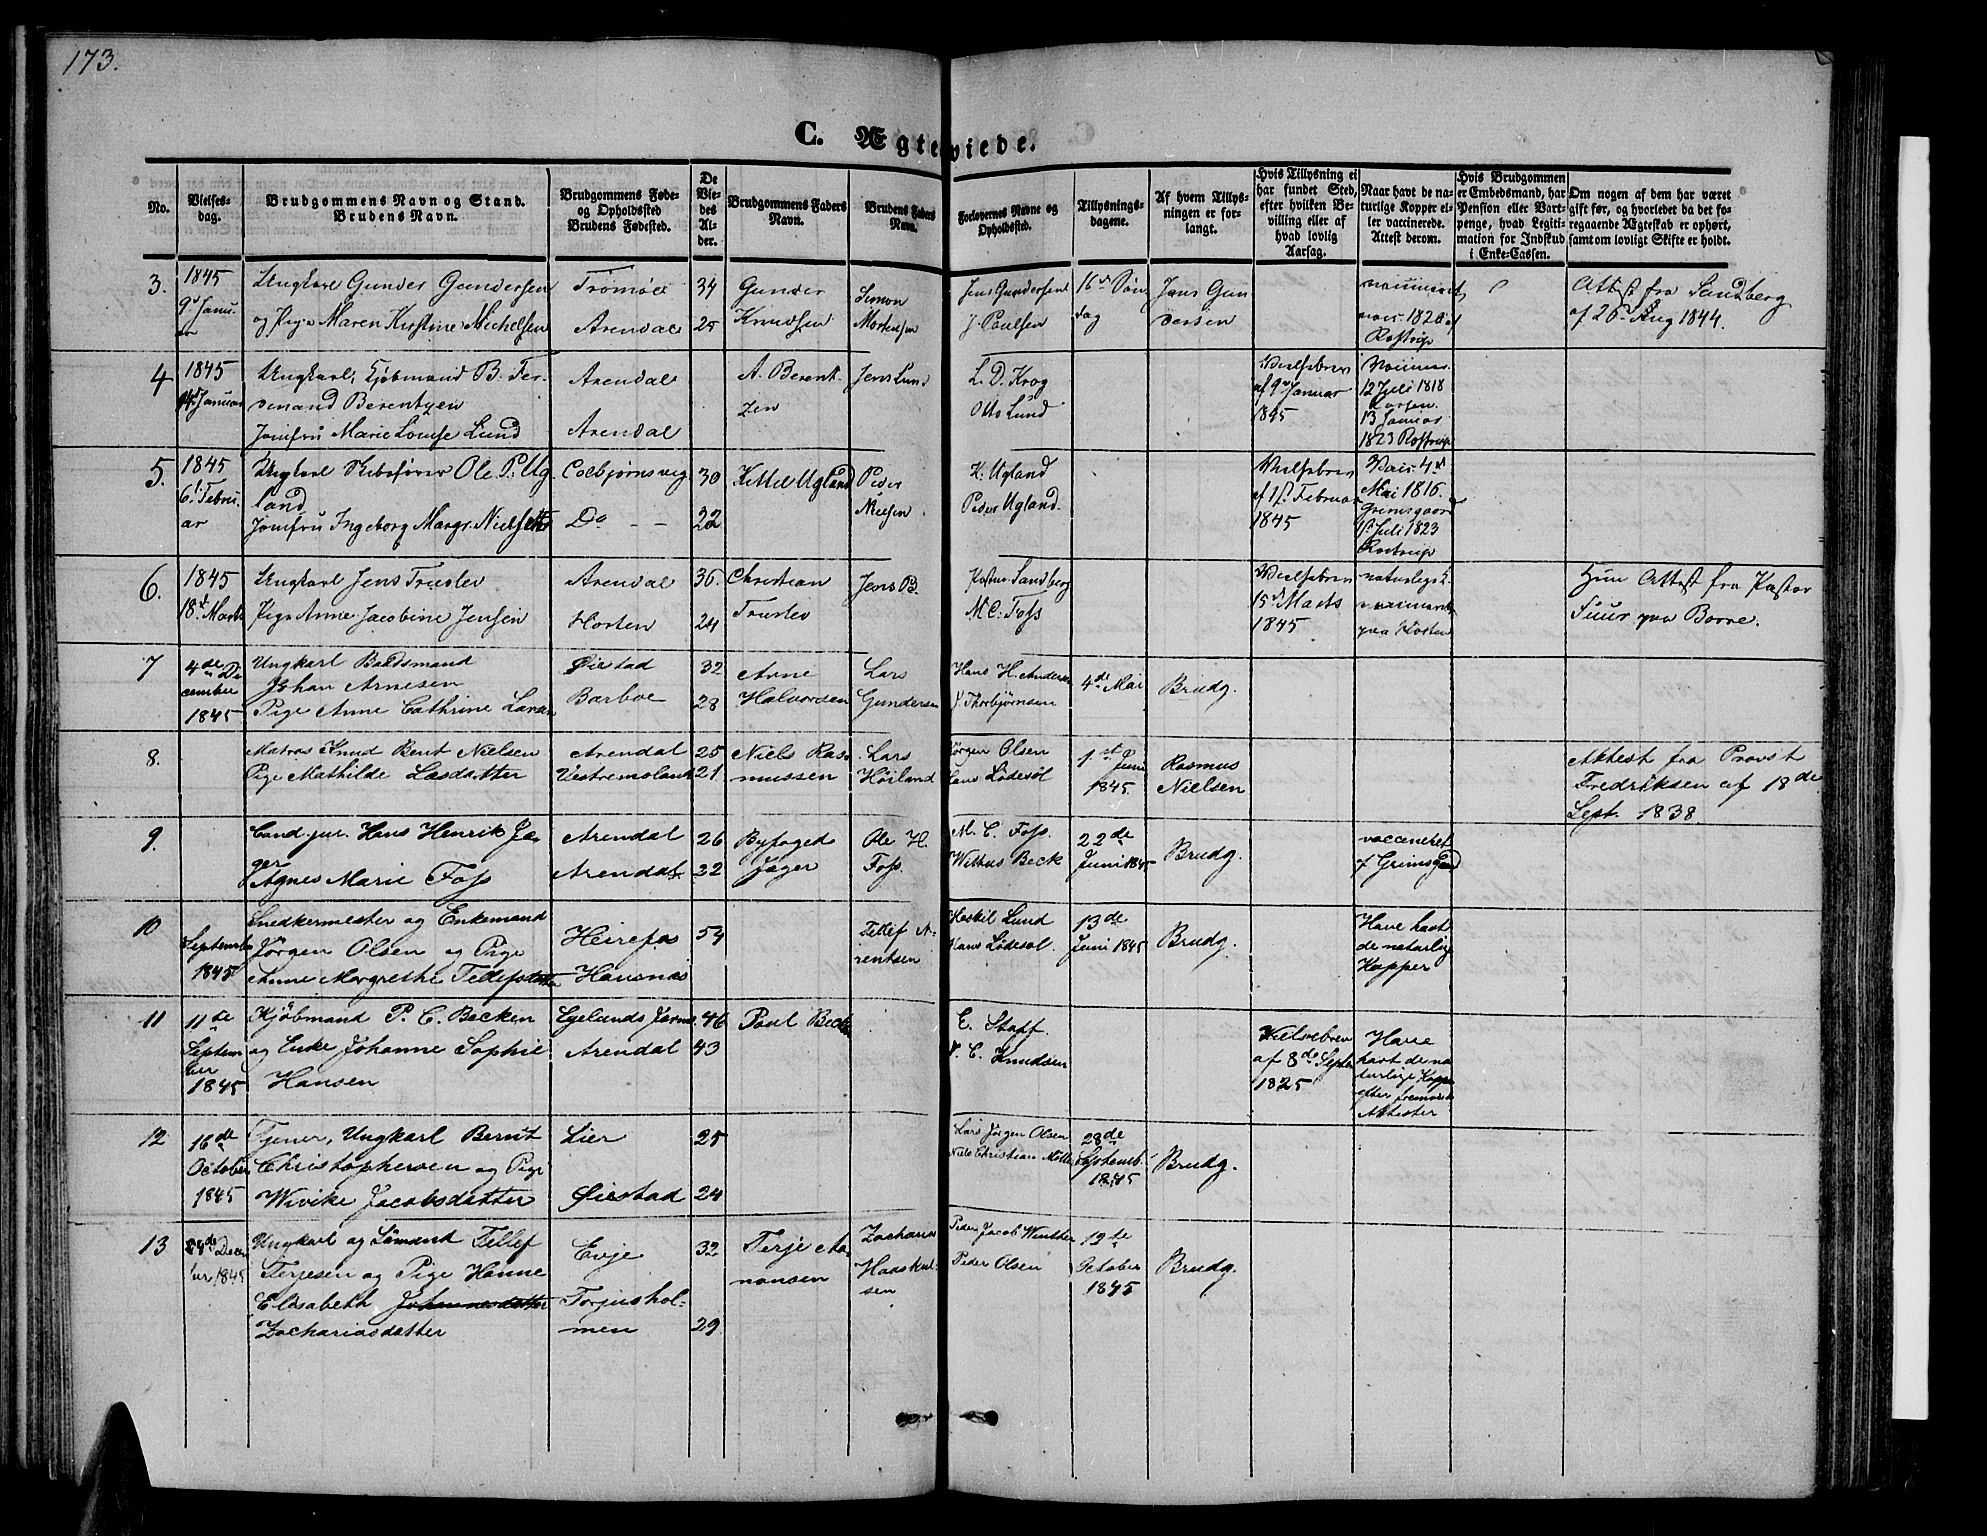 173.
C. Ægteviede.
No.
Vielses-
dag.
Brudgommens Navn og Stand.
Brudens Navn.
Brudgommens Føde-
og Opholdssted
Brudens Fødested.
De
Vie-
des
Al-
der.
Brudgommens Faders
Navn.
Brudens Faders
Navn.
Forlovernes Navne og
Opholdssted.
Tillysnings-
dagene.
Af hvem Tillys-
ningen er for-
langt.
Hvis Tillysning ei
har fundet Sted,
efter hvilken Be-
villing eller af
hvad lovlig
Aarsag.
Naar havt de na-
turlige Kopper el-
ler vaccinerede.
Attest derom.
Hvis Brudgommen
er Embedsmand, har
Pension eller Vart-
penge, hvad Legiti-
mation for Indskud
i Enke-Cassen.
Om nogen af dem har været
gift før, og hvorledet da det fo-
regaaende Ægteskab er ophørt,
samt om lovligt Skifte er holdt.
3.
1845
9de Janu-
ar
Ungkarl Gunder Gundersen
og Pige Maren Kirstine Michelsen
Tromøe
Arendal
34
25
Gunder
Knudsen
Simon
Mortensen
Jens Gundersen
J. Paulsen
16de Søn
dag
Jens Gun
dersen
1820 af
Rostrup
Attest fra Sandberg
af 26 Aug 1844.
4
1845
14de Januar
Ungkarl, Kjøbmand B. Fer-
denand Berentzen
Jomfru Marie Louise Lund
Arendal
Arendal
A. Berent-
zen
Jens Lund
L. D. Krog
Otto Lund
af 9de Januar
1845
12 Juli 1818
Larsen.
13 Januar
1823 Rostrup
5.
1845
6te Febru-
ar
Ungkarl Skibsfører Ole P. Ug-
land
Jomfru Ingeborg Margr. Nielsen
Colbjørnsvig
Do - -
30
22
Kittel Ugland
Peder
Nielsen
K. Ugland
Peder Ugland.
af 1st Februar
1845
Vacc. 4de
Mai 1816.
Grimsgaard
1st Juli 1823
Rostrup
6.
1845
18de Marts
Ungkarl Jens Truslev
Pige Anne Jacobine Jensen
Arendal
Horten
36.
24
Christian
Truslev
Jens B.
Pastor Sandberg
M. C. Foss
15de Marts
1845
naturlige K.
paa Horten
Hun Attest fra Pastor
Fuur paa Borre.
7
4de De
cember
1845
Ungkarl Baadsmand
Johan Arnesen
Pige Anne Cathrine Larsen
Øiestad
Barboe
32
28
Arne
Halvorsen
Lars
Gundersen
Hans H. Andersen
J. Thorbjørnsen
4de Mai
Brudg.
8.
Matros Knud Bent Nielsen
Pige Mathilde Lasdatter
Arendal
Vestremoland
25
21
Niels Ras-
mussen
Lars
Høiland
Jørgen Olsen
Hans Lødesøl
1st Juni
1845.
Rasmus
Nielsen
Attest fra Provst
Fredriksen af 18de
Sept. 1838.
9.
Cand. jur. Hans Henrik Jæ-
ger
Agnes Marie Foss
Arendal
Arendal
26
32
Byfoged
Jæger
Ole H.
Foss.
M. C. Foss.
Withus Beck
22de
Juni 1845
Brudg.
vaccineret
af Grimsgaard
10
September
1845
Snedkermester og Enkemand
Jørgen Olsen og Pige
Anne Margrethe Tellefsdatter
Heirefos
Hansnæs
54
Tellef A-
rentsen
Heskil Lund
Hans Lødesøl.
13de
Juni 1845
Brudg.
Have havt
de naturlige
Kopper
11
11de
Septem
ber
1845
Kjöbmand P. C. Becken
og Enke Johanne Sophie
Hansen
Egelands Jernv.
Arendal
46
43
Poul Becken
E. Staff.
T. C. Knudsen
Vielsebrev
af 8de Septbr
1825
Have
havt de na
turlige Kopper
efter fremviste
Attester
12
16de
October
1845
Tjener, Ungkarl Bernt
Christophersen og Pige
Wivike Jacobsdatter
Lier
Øiestad
25
24
Lars Jørgen Olsen
Niels Christian Møller
28de
Septemb.
1845
Brudg.
13
Decem
ber 1845
Ungkarl og Sømand Tellef
Terjesen og Pige Hanne
Elisabeth Johannesdatter
Zachariasdatter
Evje
Torjushol-
men
32
29
Terje Aa-
nonsen
Zacharias
Haaskul-
sen
Peder Jacob Winther
Peder Olsen
12te
October
1845
Brudg.